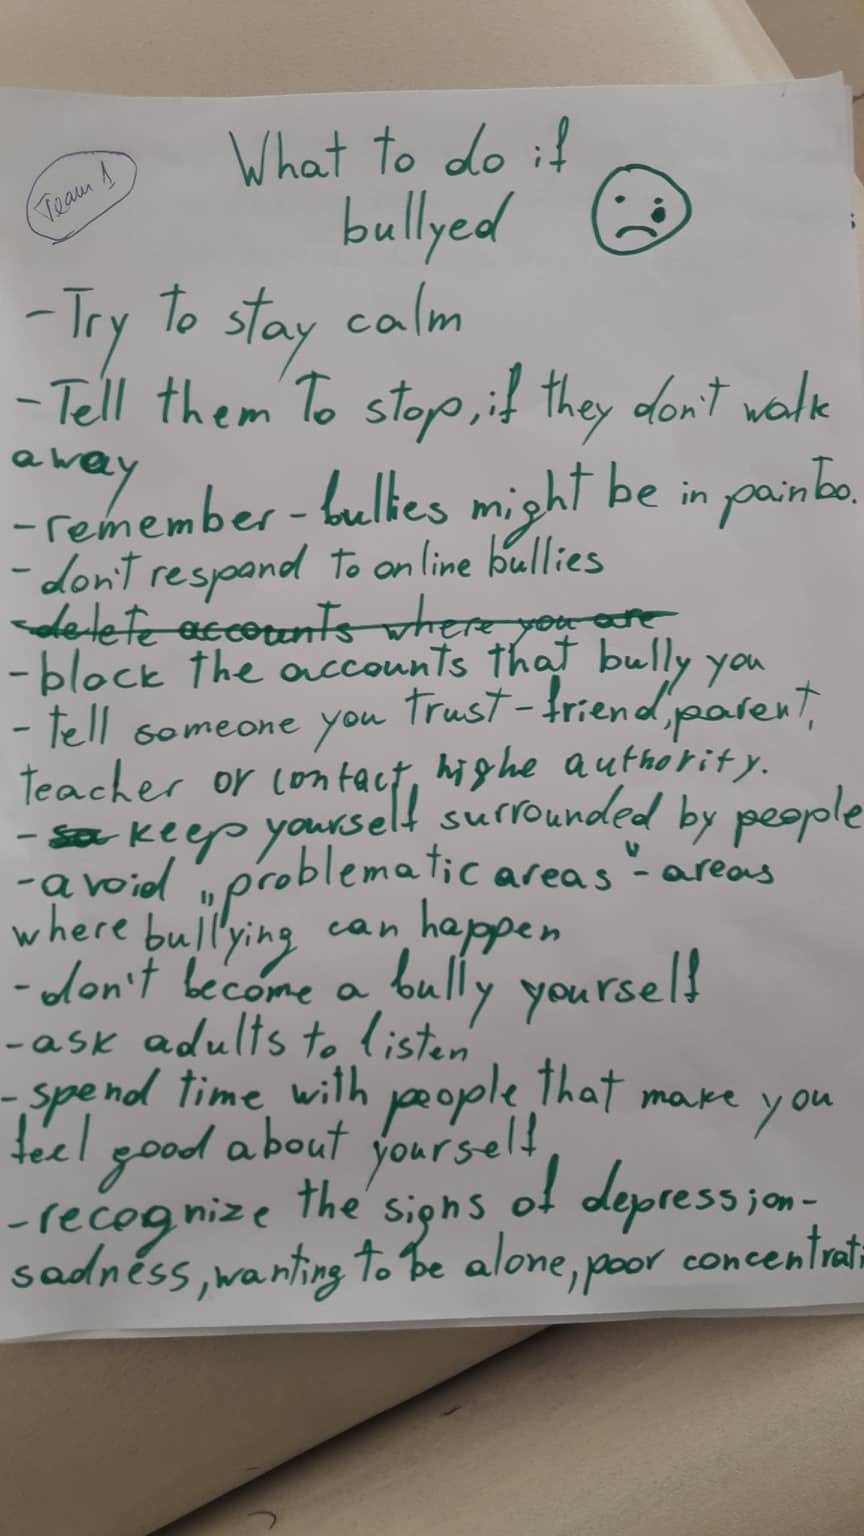 Team 1
What to do if
bullyed
- Try to stay calm
- Tell them to stop, if they don't walk
away
- remember - bullies might be in pain too.
- don't respond to online bullies
- delete accounts where you are
- block the accounts that bully you
- tell someone you trust - friend, parent,
teacher or contact highe authority.
- keep yourself surrounded by people
- avoid „problematic areas" - areas
where bullying can happen
- don't become a bully yourself
- ask adults to listen
- spend time with people that make you
feel good about yourself
- recognize the signs of depression -
sadness, wanting to be alone, poor concentrati